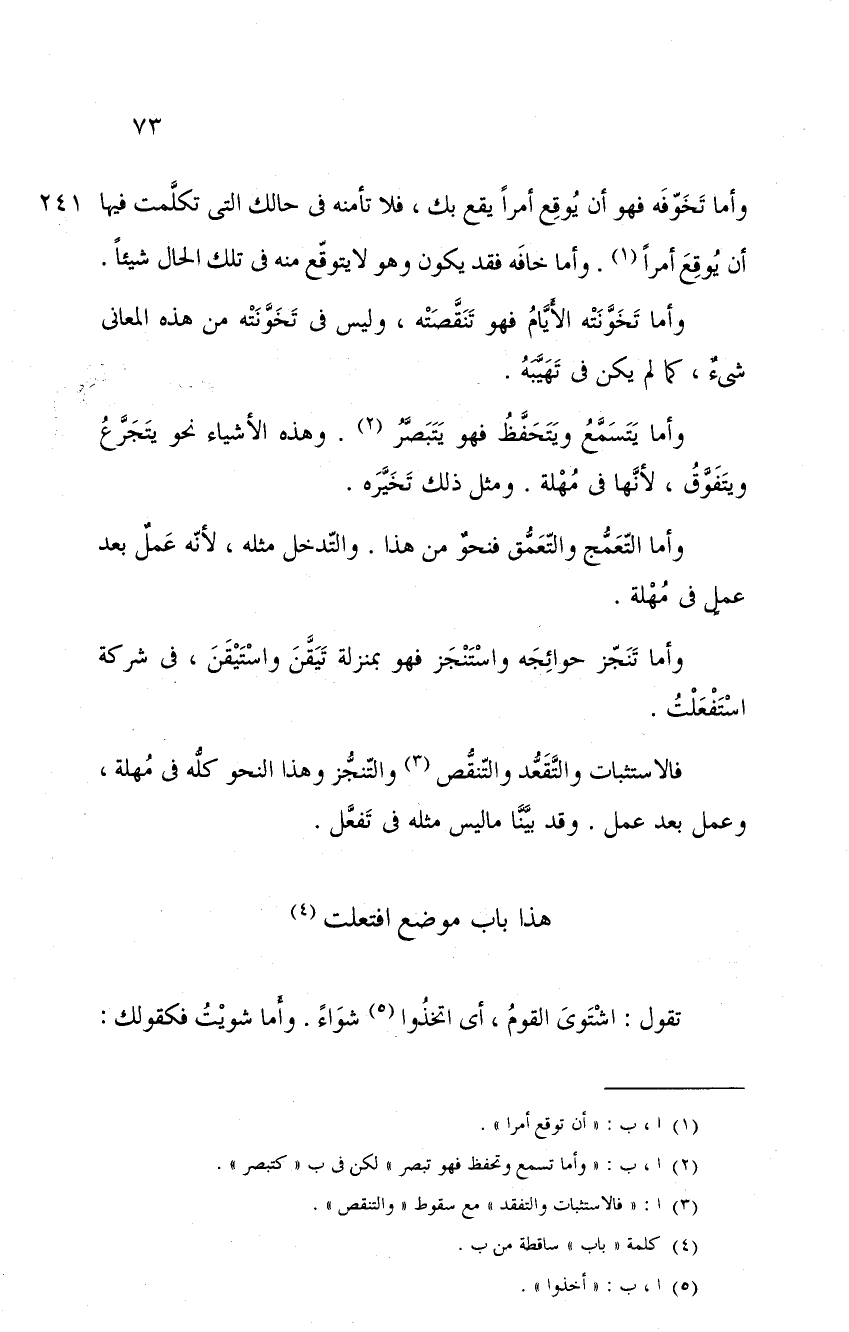 ٧٣
وأما تَخَوّفَه فهو أن يُوقِع أمراً يقع بك ، فلا تأمنه فى حالك التى تكلَّمت فيها ٢٤١
أن يُوقِعَ أمراً (١) . وأما خافَه فقد يكون وهو لايتوقّع منه فى تلك الحال شيئاً .
وأما تَخَوَّنَتْه الأيَّامُ فهو تَنَقَّصَتْه ، وليس فى تَخَوَّنَتْه من هذه المعانى
شىءٌ ، كما لم يكن فى تَهَيَّبَهُ .
وأما يَتَسَمَّعُ ويَتَحَفَّظُ فهو يَتَبَصَّرُ (٢) . وهذه الأشياء نحو يتَجَرَّعُ
ويتَفَوَّقُ ، لأنَّها فى مُهْلة . ومثل ذلك تَخَيَّرَه .
وأما التّعَمُّج والتّعَمُّق فنحوٌ من هذا . والتّدخل مثله ، لأنّه عَملٌ بعد
عملٍ فى مُهْلة .
وأما تَنَجّز حوائِجَه واسْتَنْجَز فهو بمنزلة تَيَقَّنَ واسْتَيْقَنَ ، فى شركة
اسْتَفْعَلْتُ .
فالاستثبات والتَّقَعُّد والتّنقُّص (٣) والتّنجُّز وهذا النحو كلُّه فى مُهلة ،
وعمل بعد عمل . وقد بيَّنَّا ماليس مثله فى تَفعَّل .
هذا باب موضع افتعلت (٤)
تقول : اشْتَوىَ القومُ ، أى اتخذُوا (٥) شوَاءً . وأَما شويْتُ فكقولك :
(١) ا ، ب : « أن توقع أمرا » .
(٢) ا ، ب : « وأما تسمع وتحفظ فهو تبصر » لكن فى ب « كتبصر » .
(٣) ا : « فالاستثبات والتفقد » مع سقوط « والتنقص » .
(٤) كلمة « باب » ساقطة من ب .
(٥) ا ، ب : « أخذوا » .